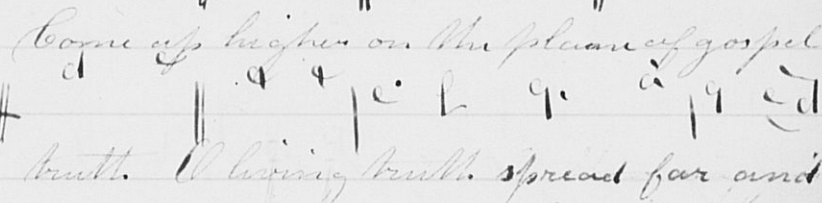 Come up higher on the plane of gospel
d c a a | e. l q. a | q e d
truth. O living truth spread far and